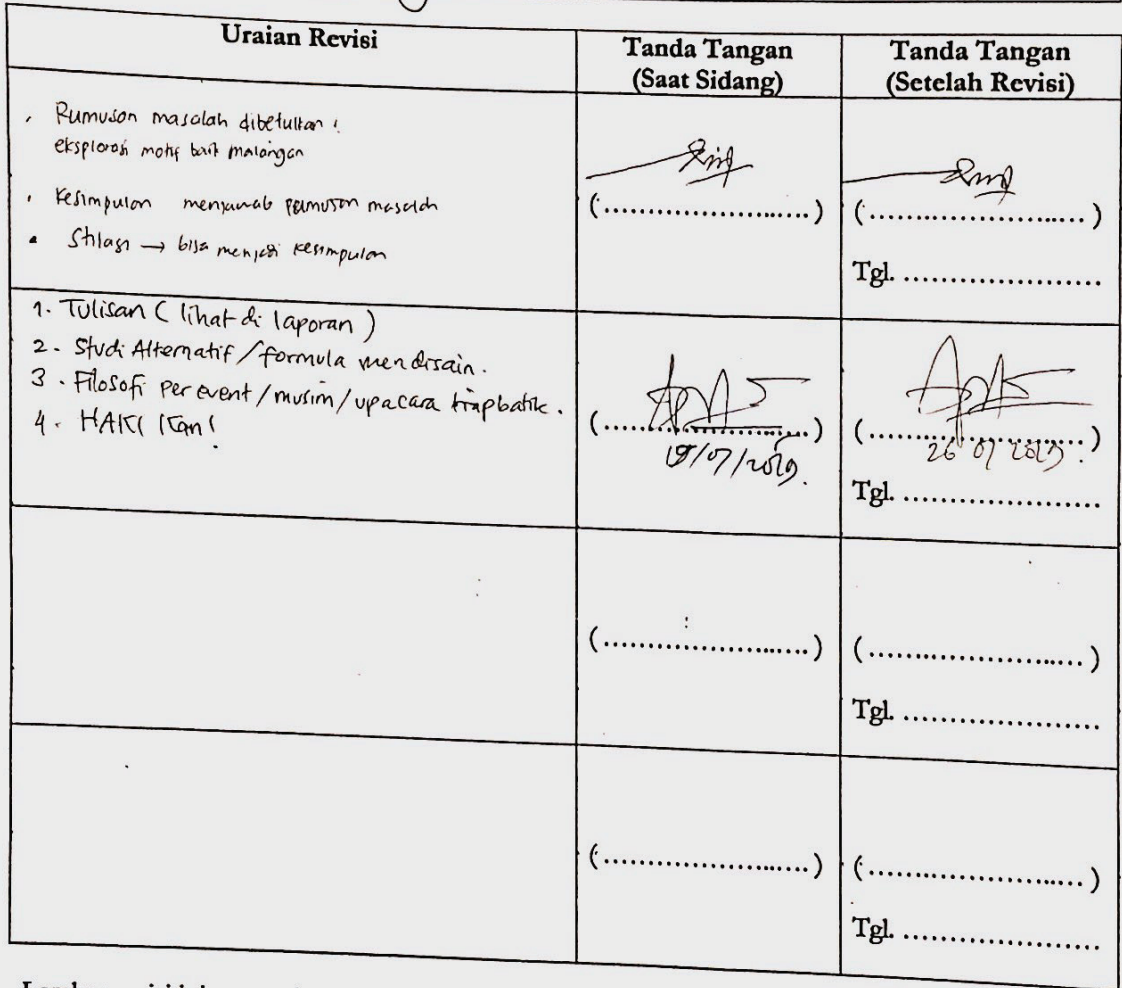 Uraian Revisi
Tanda Tangan
(Saat Sidang)
Tanda Tangan
(Setelah Revisi)
Rumuson masalah dibetulkan :
eksplorasi motif batik malangan
(........................)
(........................)
• Kesimpulan menjawab rumuson masalah
• Stilasi → bisa menjadi kesimpulan
Tgl. ......................
1. Tulisan ( lihat di laporan )
2. Studi Alternatif / formula mendisain.
3. Filosofi per event / musim / upacara tiap batik.
4. HAKI kan!
(........................)
19/07/2019.
(........................)
26 07 2019.
Tgl. ......................
(........................)
(........................)
Tgl. ......................
(........................)
(........................)
Tgl. ......................